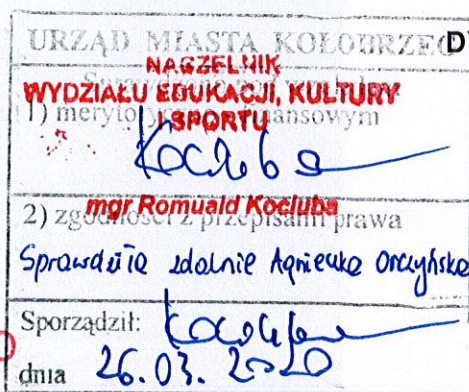 URZĄD MIASTA KOŁOBRZEG D
NACZELNIK
WYDZIAŁU EDUKACJI, KULTURY
I SPORTU
1) merytorycznym finansowym
Kocluba
mgr Romuald Kocluba
2) zgodności z przepisami prawa
Sprawdziła zdalnie Agnieszka Orczyńska
Sporządził: Kocluba
dnia 26.03.2020